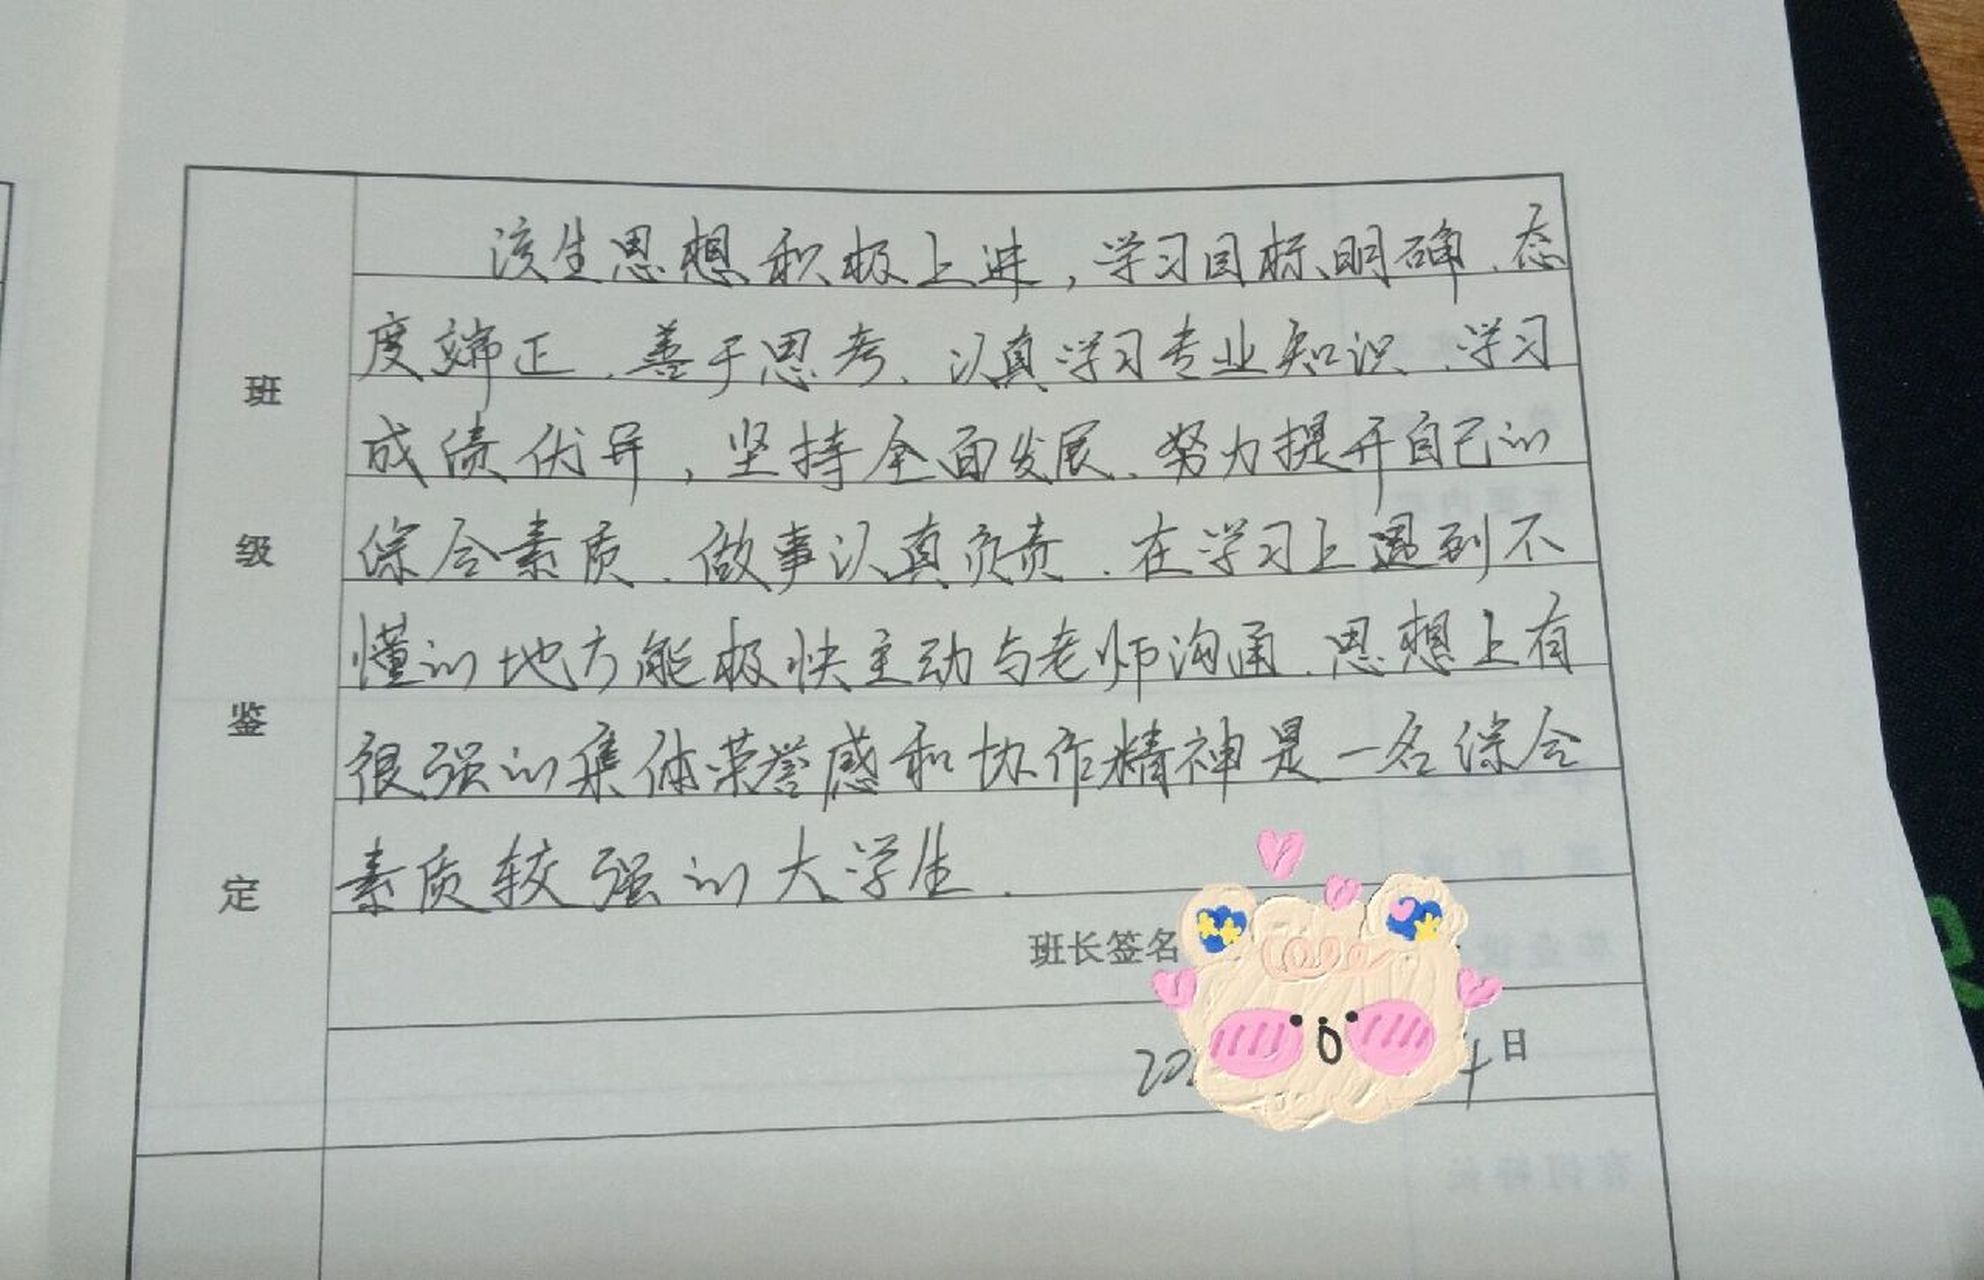 该生思想积极上进，学习目标明确、态
度端正、善于思考、认真学习专业知识、学习
成绩优异，坚持全面发展、努力提升自己的
综合素质、做事认真负责、在学习上遇到不
懂的地方能极快主动与老师沟通、思想上有
很强的集体荣誉感和协作精神是一名综合
素质较强的大学生.
班级鉴定
班长签名
日